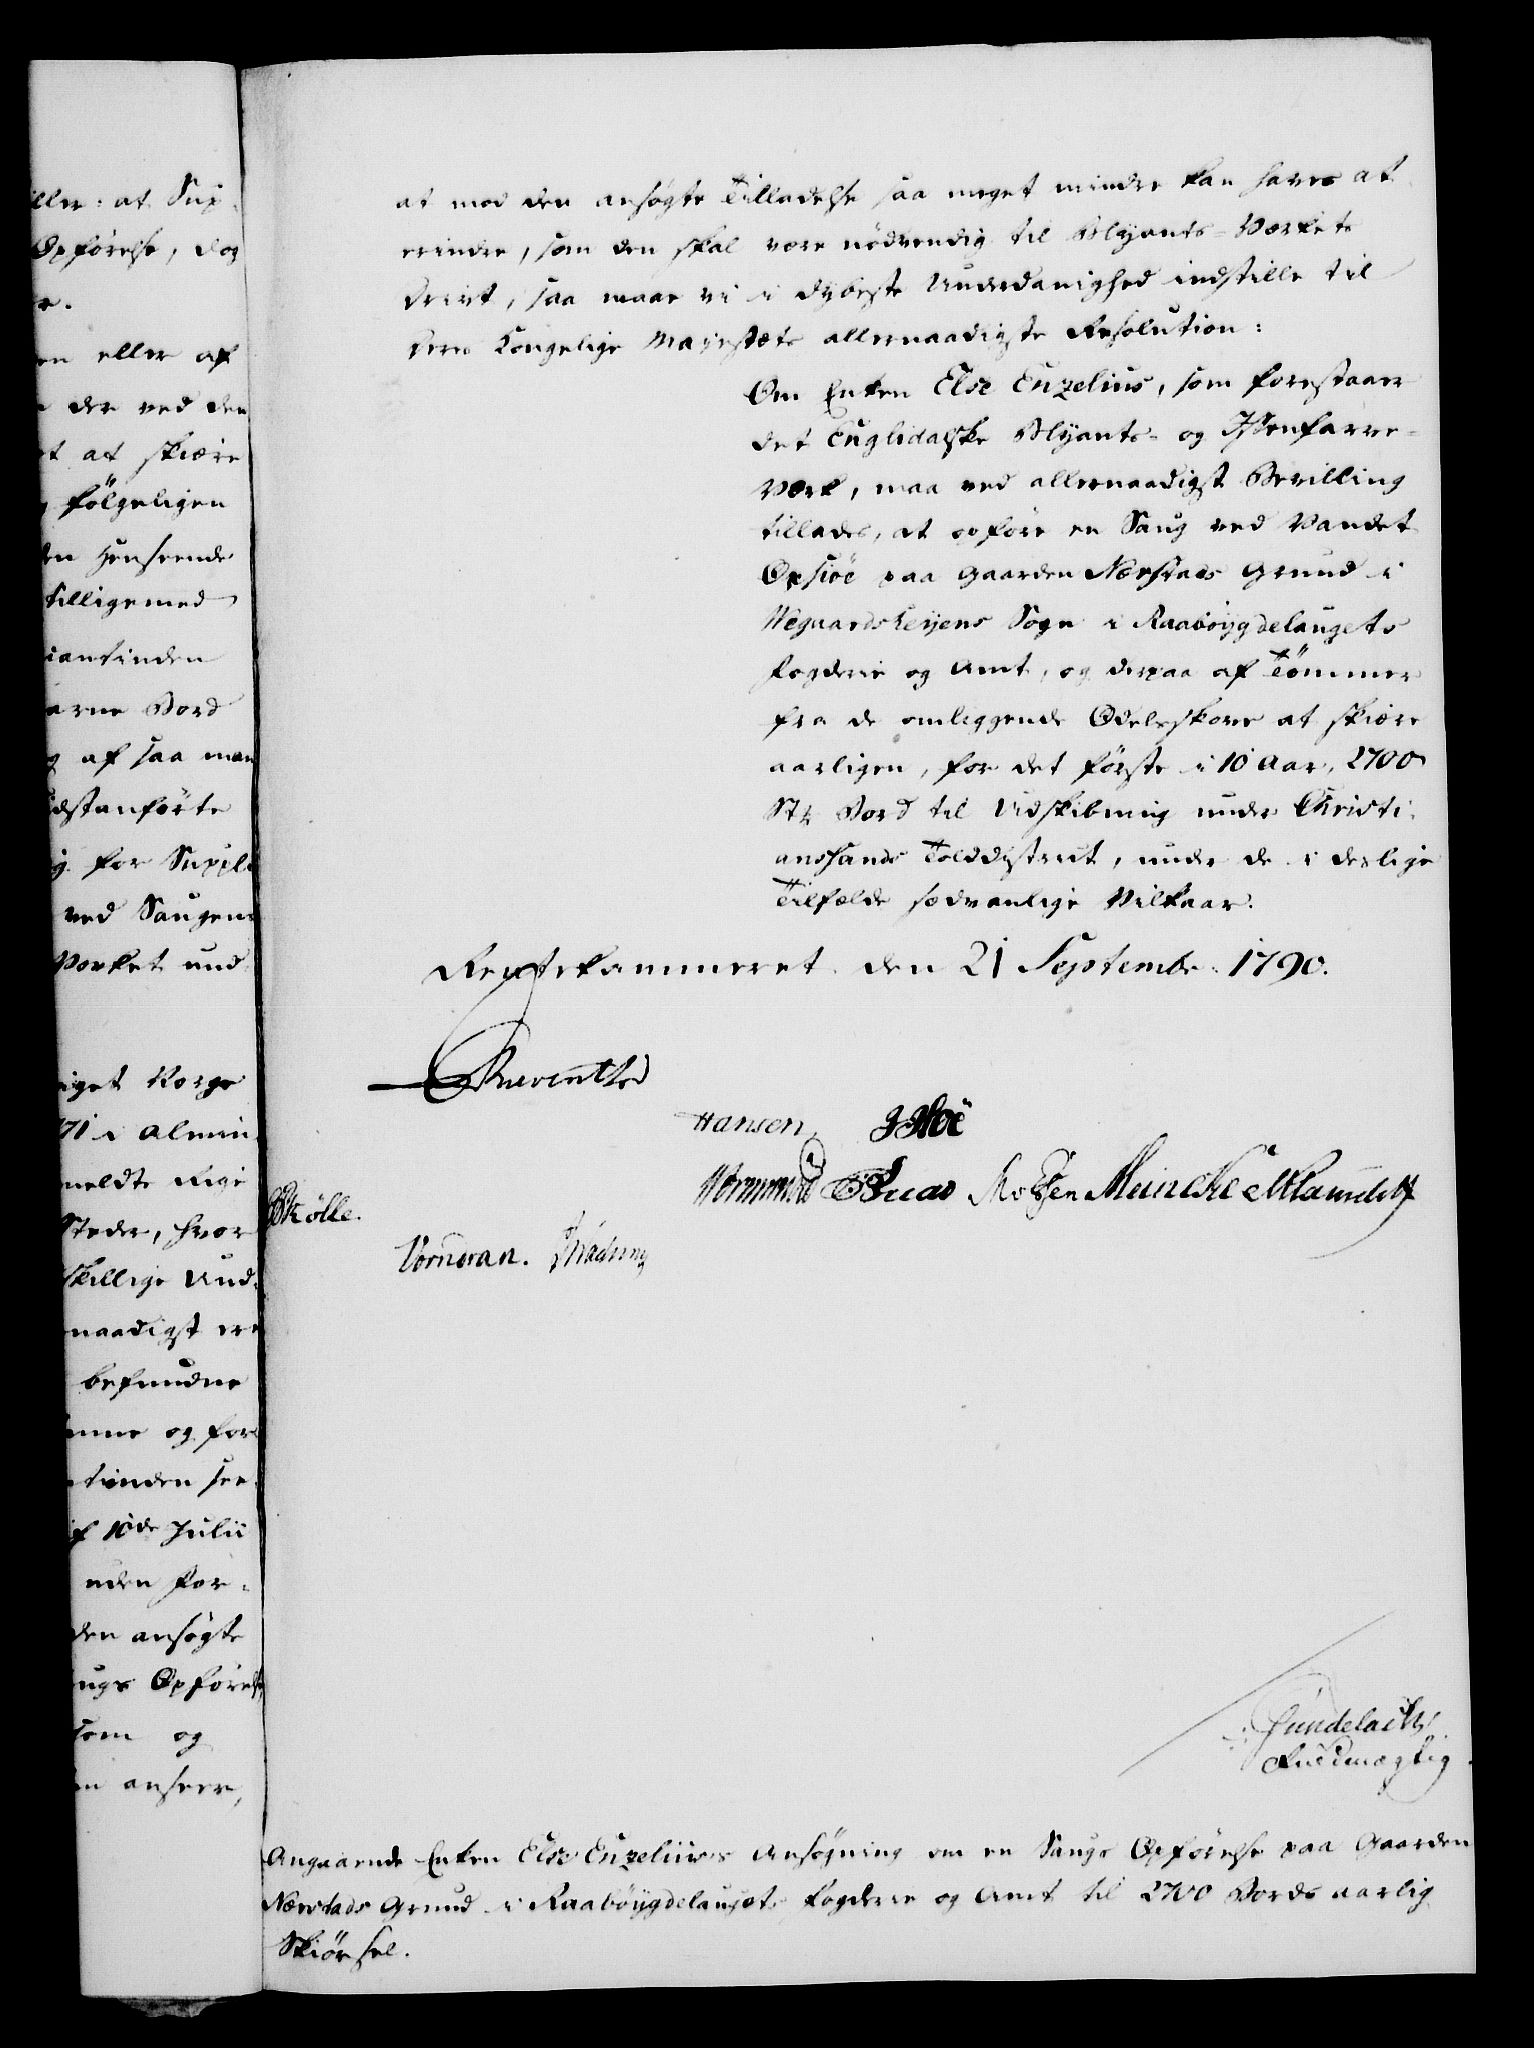 ller: at Sup-
Opførelse, dog
re.
en eller af
der ved den
et at skiære
følgeligen
den Henseende
tilligemed
iantinden
arne Bord
g af saa man
idstanførte
g for Suppli
ved Saugens
Værket und
iget Norge
71 i Almin-
meldte Rige
Stæder, hvor
skillige Und-
naadigst er
befundne
inne og for
tinden see
f 10de Julii
uden for-
den ansøgte
ugs Opførelse
som og
n ansees,
at mod den ansøgte Tilladelse saa meget mindre kan haves at
erindre, som den skal være nödvendig til Blyants-Værkets
Drivt, saa maae vi i dybeste Underdanighed indstille til
Deres Kongelige Majestæts allernaadigste Resolution:
Om Enken Else Enzelius, som forestaaer
det Englidalske Blyants- og Isenfarve-
Værk, maa ved allernaadigst Bevilling
tillades, at opføre en Saug ved Vandet
Opsiöe paa Gaarden Næsstads Grund i
Wegaardsheyens Sogn i Raabøygdelaugets
Fogderie og Amt, og derpaa af Tømmer
fra de omliggende Odelsskove at skiære
aarligen, for det første i 10 Aar, 2700
Stk Bord til Udskibning under Christi-
anssands Tolddistrict, under de i deslige
Tilfælde sædvanlige Vilkaar.
Rentekammeret den 21 Septembr. 1790.
Reventlow
Hansen
Wormskiold Meincke
Skölle.
Vornoran.
Gundelach
Fuldmægtig
Angaaende Enken Else Enzelius's Ansøgning om en Saugs Opførelse paa Gaarden
Næsstads Grund i Raabøygdelaugets Fogderie og Amt til 2700 Bords aarlig
Skiørsel.